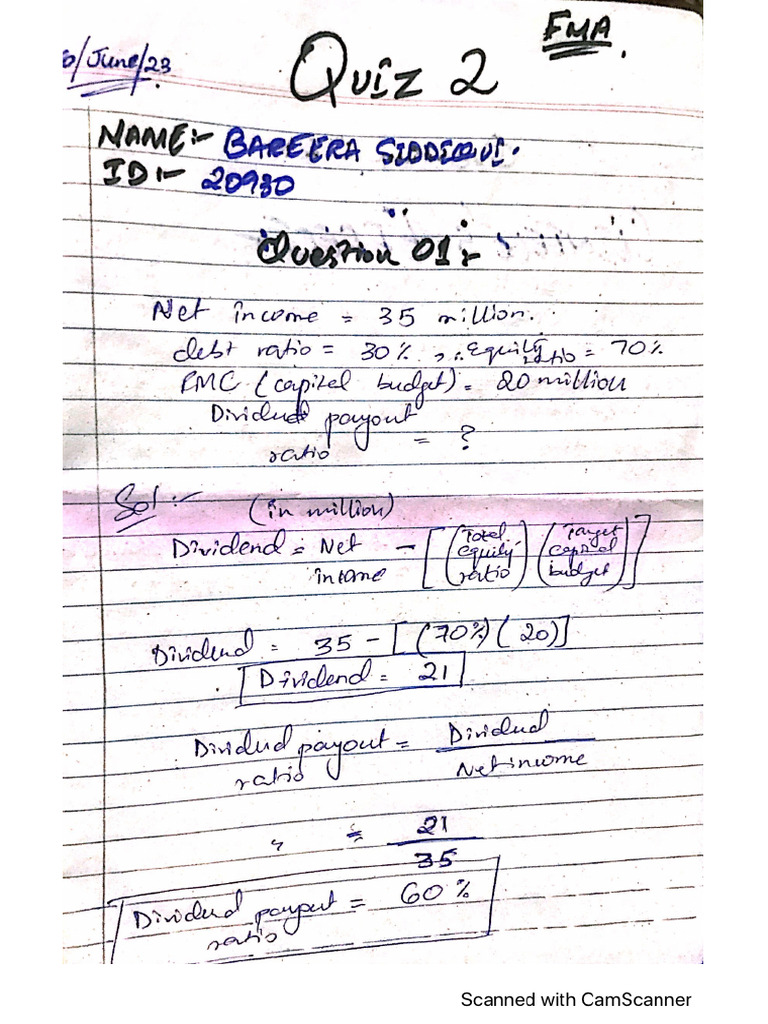 FMA
/June/23
Quiz 2
NAME:- BAREERA SIDDIQUI.
ID:- 20930
Question 01:-
Net income = 35 million.
debt ratio = 30%, ∴ Equity ratio = 70%
PMC (capital budget) = 20 million
Dividend payout ratio = ?
Sol:- (in million)
Dividend = Net income - [(Total equity ratio) (Target capital budget)]
Dividend = 35 - [(70%) (20)]
Dividend = 21
Dividend payout ratio = Dividend / Net income
= 21 / 35
Dividend payout ratio = 60%
Scanned with CamScanner